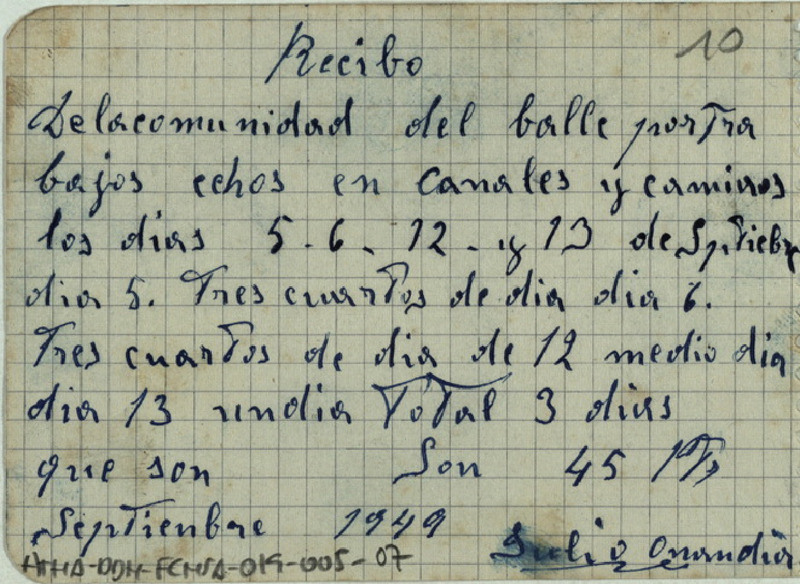 10
Recibo
Delacomunidad del balle por tra
bajos echos en canales y caminos
los dias 5-6-12-y 13 de Sptiebre
dia 5. Tres cuartos de dia dia 6.
Tres cuartos de dia de 12 medio dia
dia 13 undia Total 3 dias
que son Son 45 Pts
Septienbre 1949
Julio Onandia
AHHA-DDH-FCHSA-019-005-07